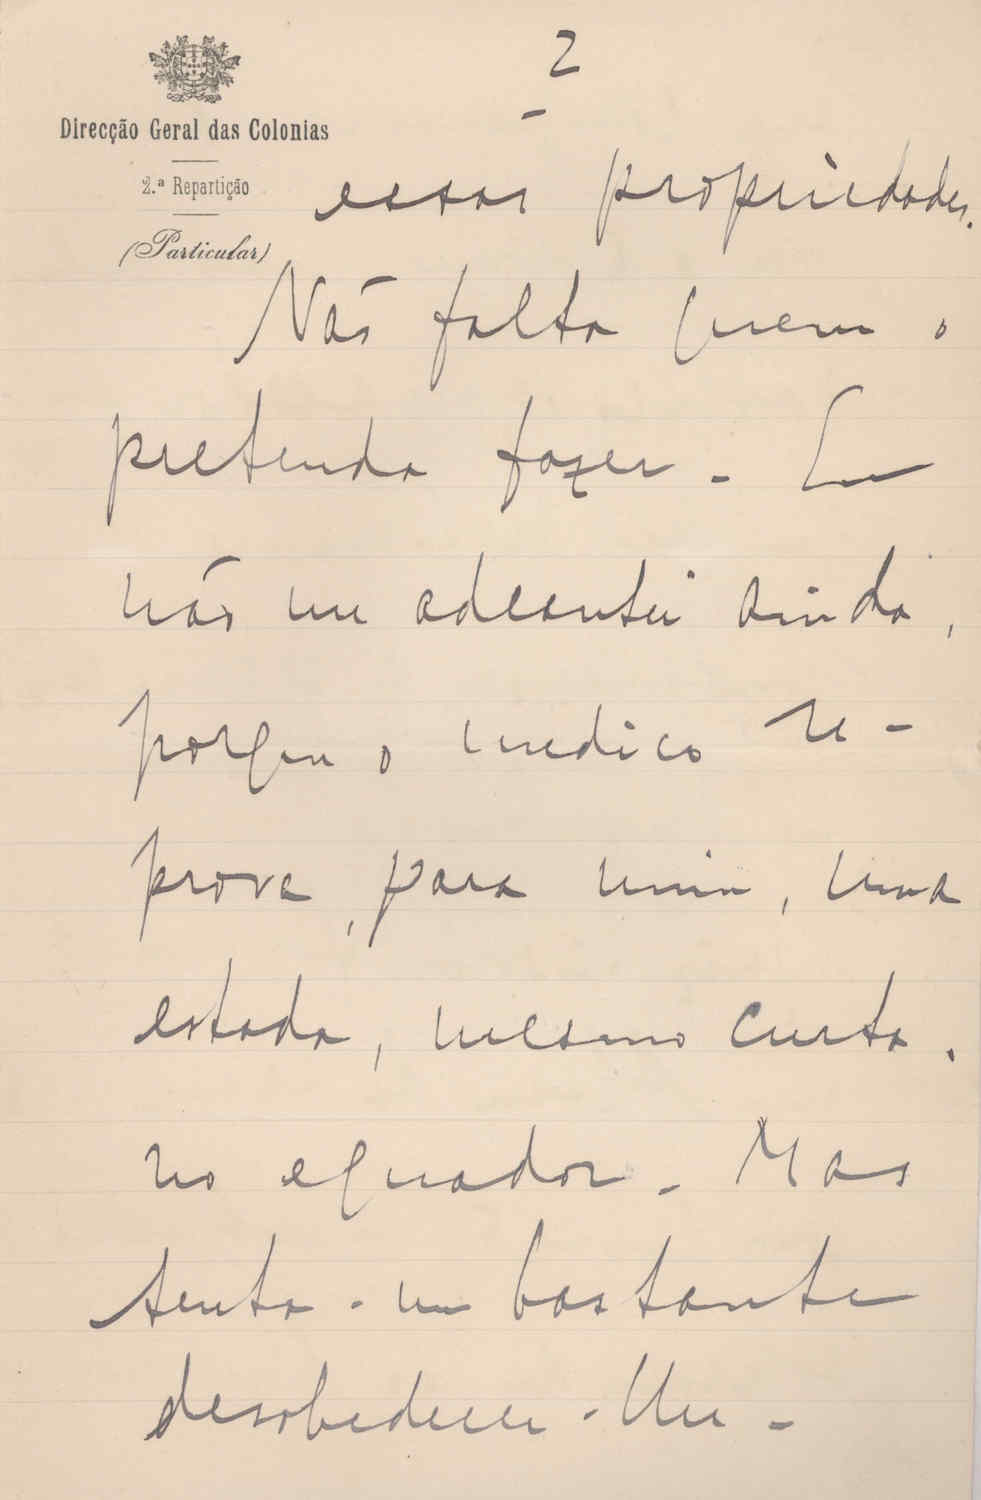 2
Direcção Geral das Colonias
2.ª Repartição
(Particular)
essas propriedades.
Não falta quem o
pretenda fazer. Eu
não me adeantei ainda,
porque o medico re-
prova, para mim, uma
estada, mesmo curta,
no equador. Mas
tenta-me bastante
desobedecer-lhe.